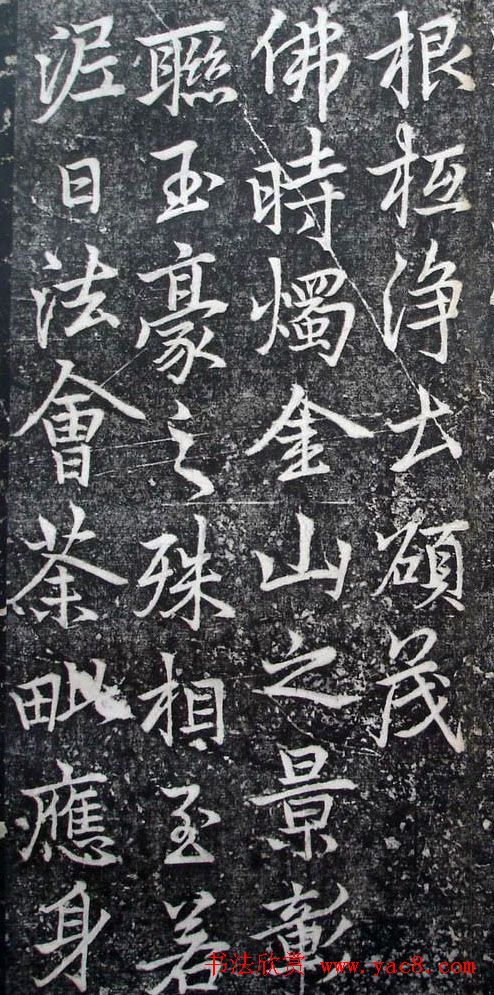 根柢淨土碩茂
佛時燭金山之景彰
聯玉豪之殊相至若
泥日法會荼毗應身
书法欣赏 www.yac8.com